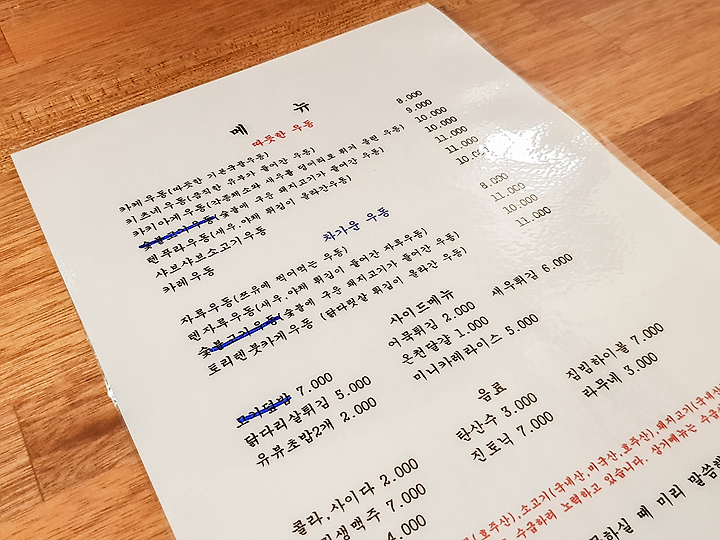 메 뉴
따듯한 우동
카케우동(따듯한 기본국물우동) 8.000
키츠네우동(큼직한 유부가 들어간 우동) 9.000
카키아게우동(각종채소와 새우를 덩어리로 튀겨 올린 우동) 10.000
숯불고기우동(숯불에 구운 돼지고기가 들어간 우동) 10.000
텐푸라우동(새우,야채 튀김이 올라간우동) 11.000
샤브샤브소고기우동 11.000
카레우동 10.000
차가운 우동
자루우동(쯔유에 찍어먹는 우동) 8.000
텐자루우동(새우,야채 튀김이 들어간 자루우동) 11.000
숯불고기우동(숯불에 구운 돼지고기가 들어간 우동) 10.000
토리텐붓카케우동 (닭다릿살 튀김이 올라간 우동) 11.000
사이드메뉴
고기덮밥 7.000 어묵튀김 2.000 새우튀김 6.000
닭다리살튀김 5.000 온천달걀 1.000
유부초밥2개 2.000 미니카레라이스 5.000
음료
콜라,사이다 2.000 탄산수 3.000 짐빔하이볼 7.000
생맥주 7.000 진토닉 7.000 라무네 3.000
4.000
(호주산),소고기(국내산,미국산,호주산),돼지고기(국내산
수급하려 노력하고 있습니다. 상기메뉴는 수급
하실 때 미리 말씀해